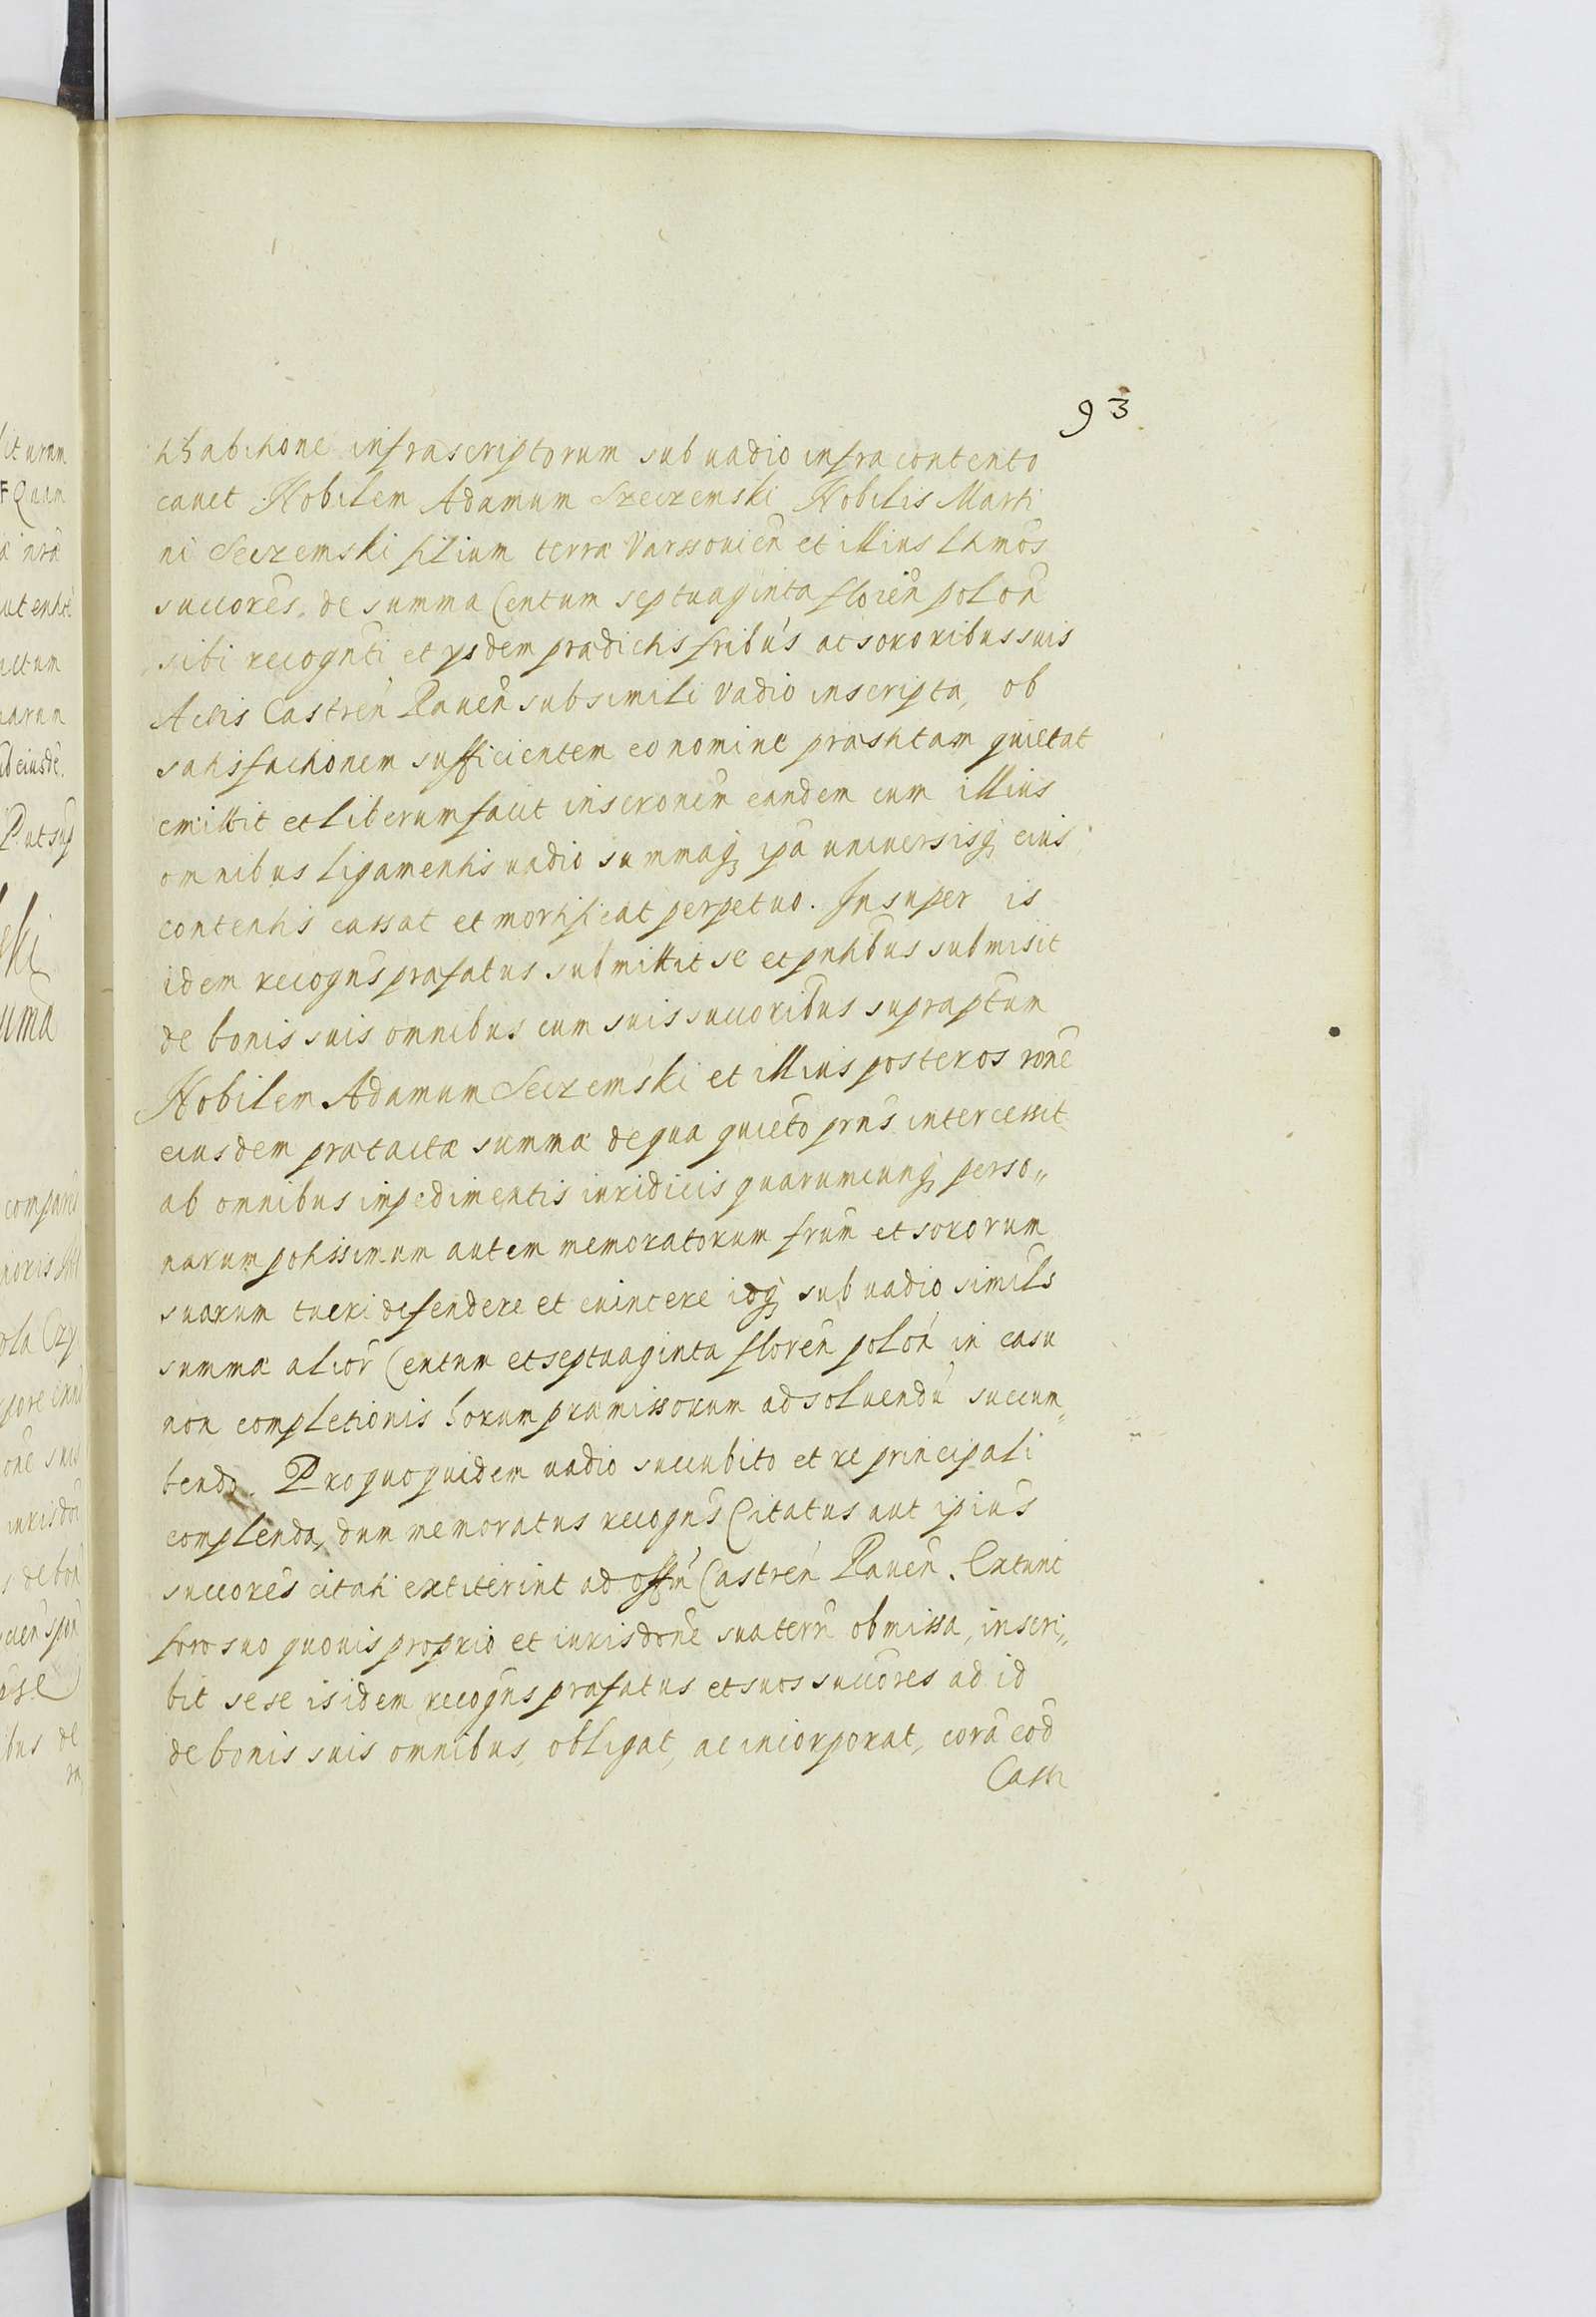 93
infrascriptorum sub uadio infra contento
cauet Nobilem Adamum Szeczemski Nobilis Marti
ni Seczemski filium terræ Varssouien̄ et illius Ltmōs
succorēs, de summa Centum septuaginta floren̄ polon̄
sibi recognti et ysdem prædictis fribūs ac sororibus suis
Actis Castren̄ Rauen̄ sub simili Vadio inscripta, ob
satisfactionem sufficientem eo nomine præstitam quietat
emittit et liberum facit inscronem̄ eandem cum illius
omnibus ligamentis uadio summaq ipā uniuersisq eius
contentis cassat et mortificat perpetuo. Insuper is
idem recogn̄s præfatus submittit se et pntibūs submisit
de bonis suis omnibus cum suis succoribūs supraptum̄
Nobilem Adamum Seczemski et illius posteros ronē
eiusdem prætactæ summæ de qua quietō prn̄s intercessit
ab omnibus impedimentis iuridicis quarumcunq perso„
narum potissimum autem memoratorum frum̄ et sororum
suarum tueri defendere et euincere idq sub uadio simils̄
summæ alior̄ Centum et septuaginta floren̄ polon̄ in casu
non completionis horum præmissorum ad soluendū succum„
bendo. Pro quo quidem uadio succubito et re principali
complenda, dum memoratus recogn̄s Citatus aut ipiūs
succorēs citati extiterint ad offm̄ Castren̄ Rauen̄. Extunc
foro suo quouis proprio et iurisdonē sua terrn̄ obmissa, inscri„
bit sese is idem recogn̄s præfatus et suos succorēs ad id
de bonis suis omnibus, obligat, ac incorporat, corā eod
Castr